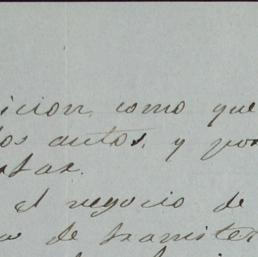 icion como que
los autos, y por
star.
el negocio de
de tramiter